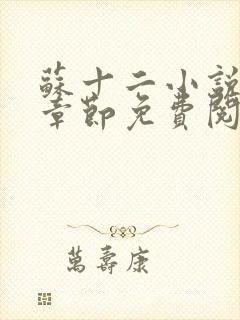 蘇十二小說
章節免費閱
萬壽康